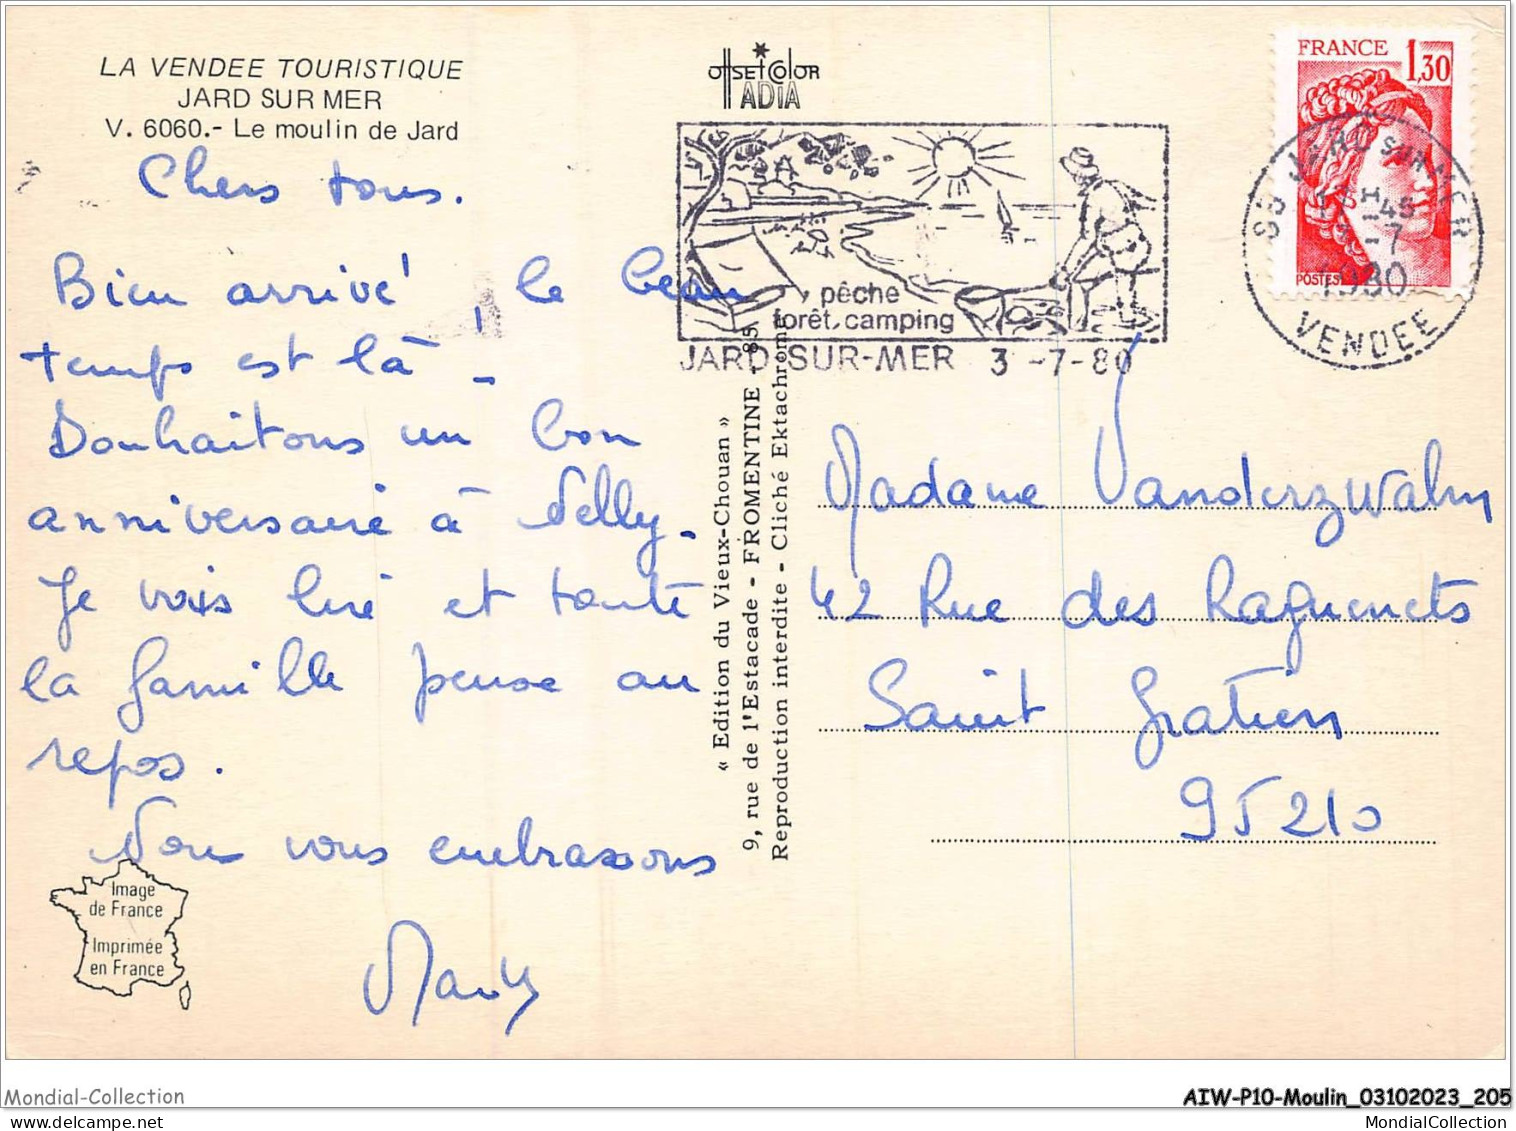 LA VENDEE TOURISTIQUE
JARD SUR MER
V. 6060.- Le moulin de Jard
Chers tous.
Bien arrivé, le beau
temps est là -
Souhaitons un bon
anniversaire à Nelly.
Je vais lire et toute
la famille pense au
repos.
Nous vous embrassons
Image
de France
Imprimée
en France
OFFSET COLOR
ADIA
pêche
forêt. camping
JARD-SUR-MER 3-7-80
« Edition du Vieux-Chouan »
9, rue de l'Estacade - FROMENTINE - 85
Reproduction interdite - Cliché Ektachrome
FRANCE
1,30
POSTES
JARD sur MER
-7
1980
VENDEE
Madame Vanderzwalm
42 Rue des Raguenets
Saint Gratien
95210
Mondial-Collection
AIW-P10-Moulin_03102023_205
MondialCollection